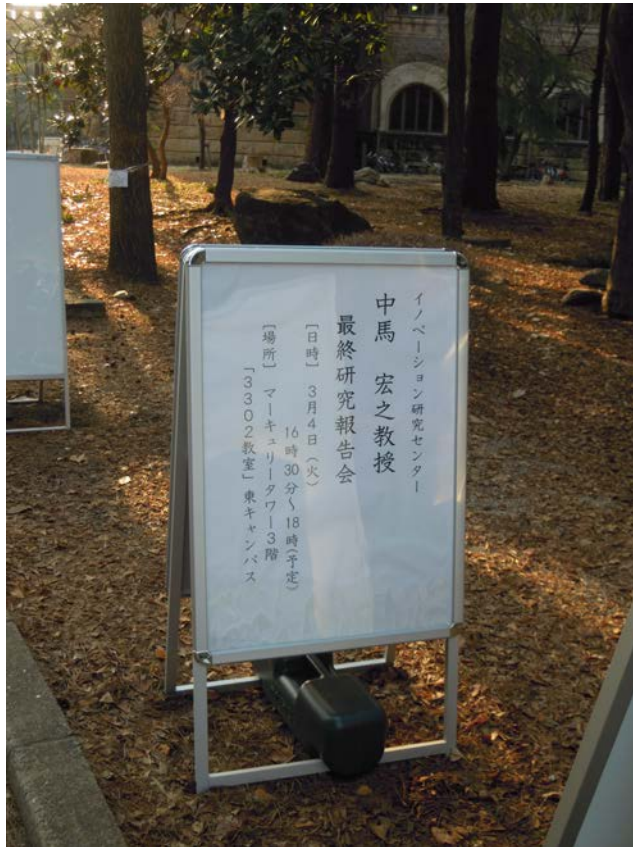 イノベーション研究センター
中馬　宏之教授
最終研究報告会
［日時］　3月4日（火）
16時30分～18時(予定)
［場所］　マーキュリータワー3階
「3302教室」東キャンパス